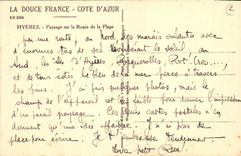 LA DOUCE FRANCE - CÔTE D'AZUR
HYÈRES. - Paysage sur la Route de la Plage
par une route, au bord des marais salants avec
d'énormes tas de sel
le soleil, au
Sud, les îles d'Hyères, Porquerolles, Port-Cros...,
et de tous côtés le bleu de la mer perce à travers
les pins. J'ai pris quelques photos, mais le
champ de l'appareil est trop faible pour donner l'impression
d'un pareil paysage. Les cartes postales n'en
donnent qu'une idée affaiblie. Je n'ai plus de
place pour écrire. Je t'embrasse tendrement
petit